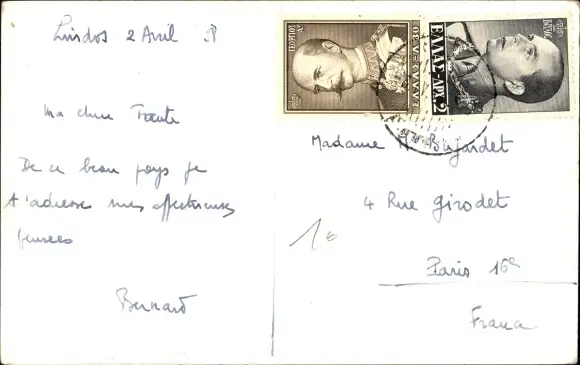 Lindos 2 Avril
Ma chère Tante
De ce beau pays je
t'adresse mes affectueuses
pensées
Bernard
ΕΛΛΑΣ-ΔΡΧ. 2
Madame
4 Rue Girodet
Paris 16e
France
10